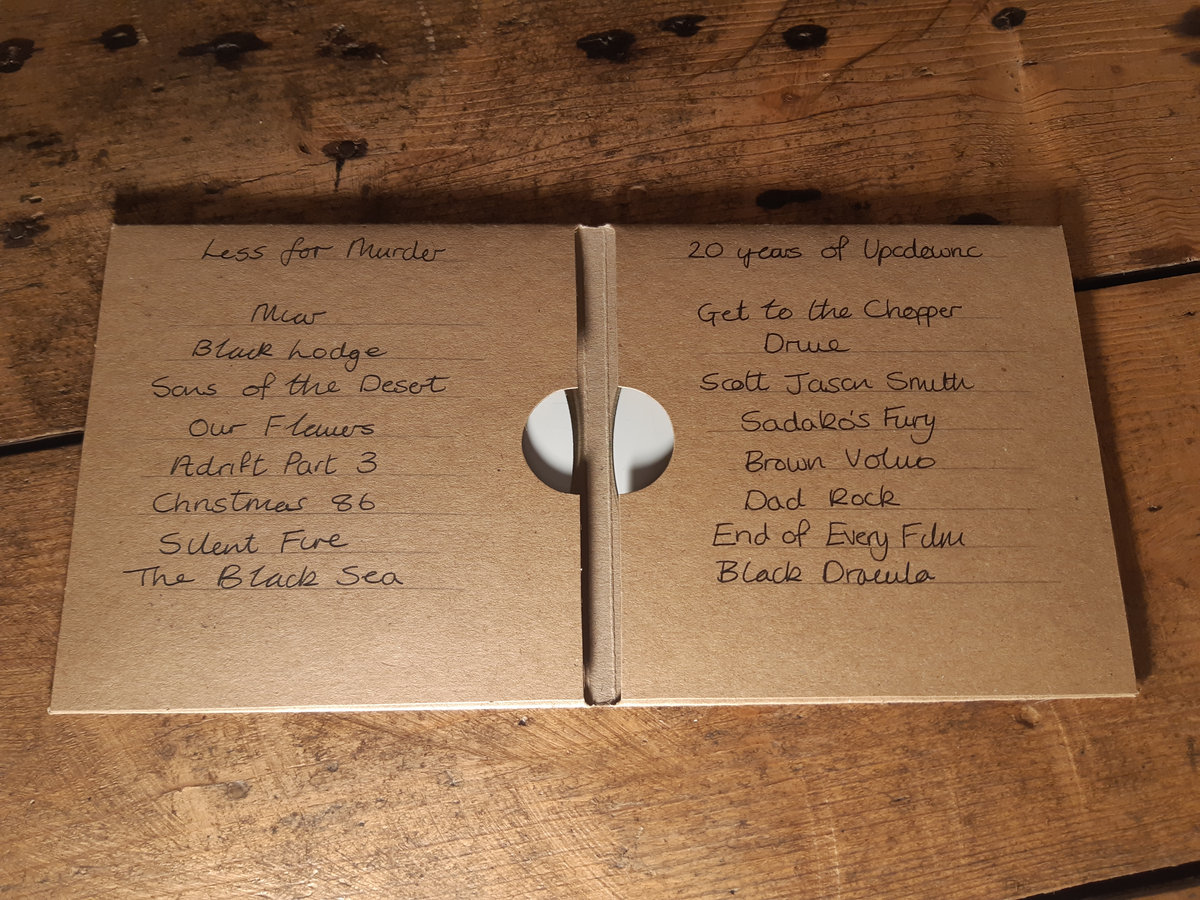 Less for Murder
Mur
Black Lodge
Sons of the Desert
Our Flowers
Adrift Part 3
Christmas 86
Silent Fire
The Black Sea
20 years of Upcdownc
Get to the Chopper
Drive
Scott Jason Smith
Sadako's Fury
Brown Volvo
Dad Rock
End of Every Film
Black Dracula